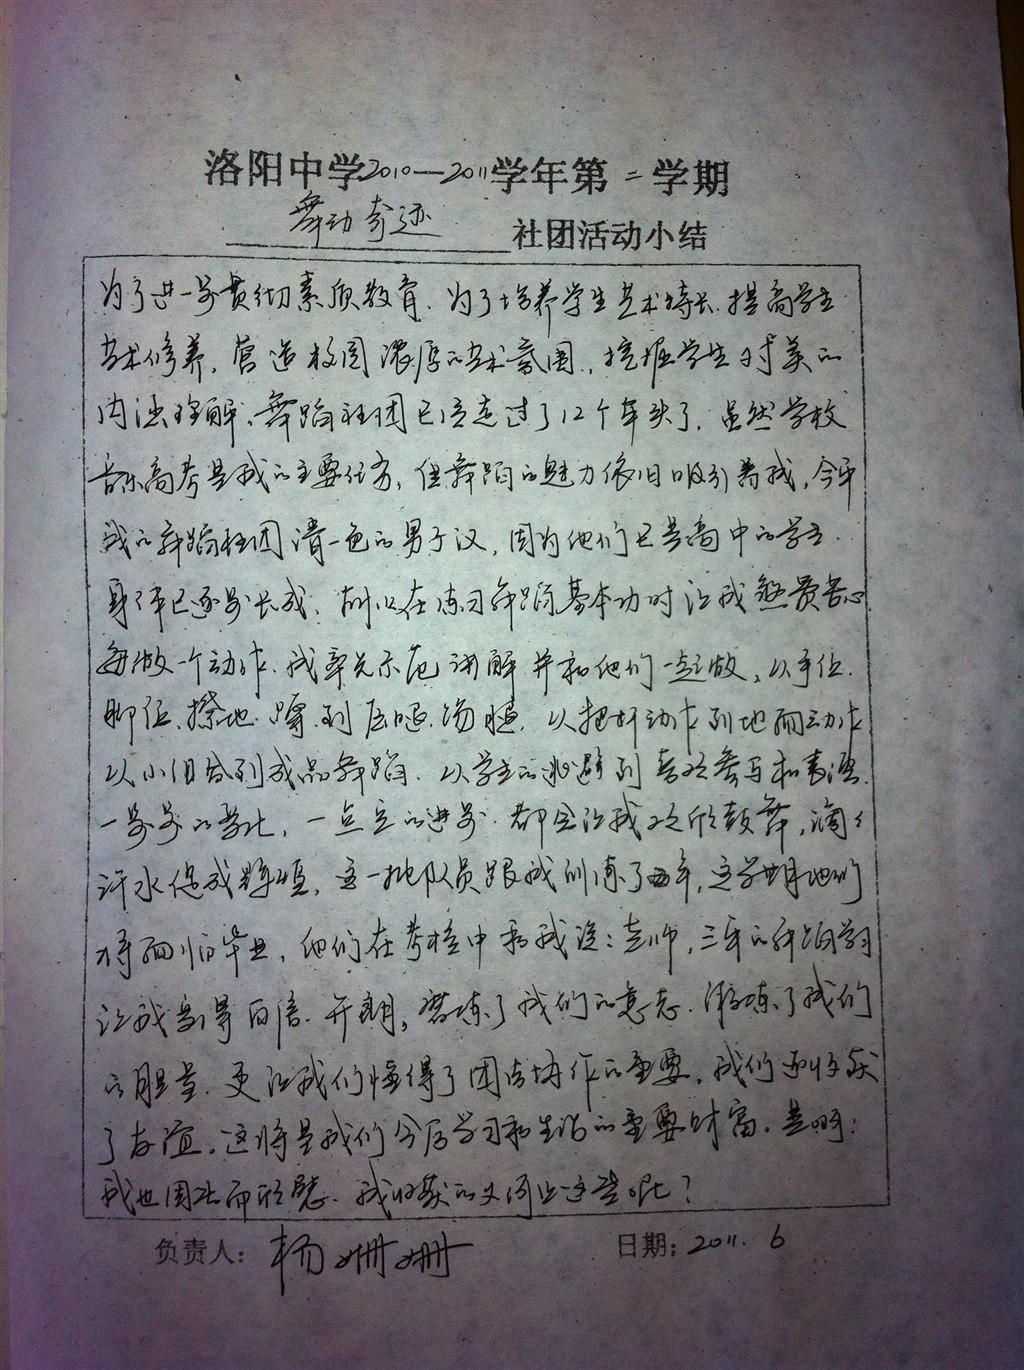 洛阳中学2010—2011学年第二学期
舞动奇迹 社团活动小结
为了进一步贯彻素质教育,为了培养学生艺术特长,提高学生
艺术修养,营造校园浓厚的艺术氛围,挖掘学生对美的
内涵理解,舞蹈社团已经走过了12个年头了,虽然学校
音乐高考是我的主要任务,但舞蹈的魅力依旧吸引着我,今年
我的舞蹈社团清一色的男子汉,因为他们已是高中的学生,
身体已逐步长成,所以在练习舞蹈基本功时让我煞费苦心
每做一个动作,我率先示范讲解并和他们一起做,从手位、
脚位、擦地、蹲、到压腿、踢腿,从把杆动作到地面动作
从小组合到成品舞蹈,从学生的逃避到喜欢参与和表演,
一步步的变化,一点点的进步,都会让我欢欣鼓舞,滴滴
汗水促成辉煌,这一批队员跟我训练了两年,这学期他们
将面临毕业,他们在考核中和我说:老师,三年的舞蹈学习
让我变得自信、开朗,磨练了我们的意志,锻炼了我们
的胆量,更让我们懂得了团结协作的重要,我们还收获
了友谊,这将是我们今后学习和生活的重要财富,是啊:
我也因此而欣慰,我收获的又何止这些呢?
负责人:杨姗姗 日期:2011.6